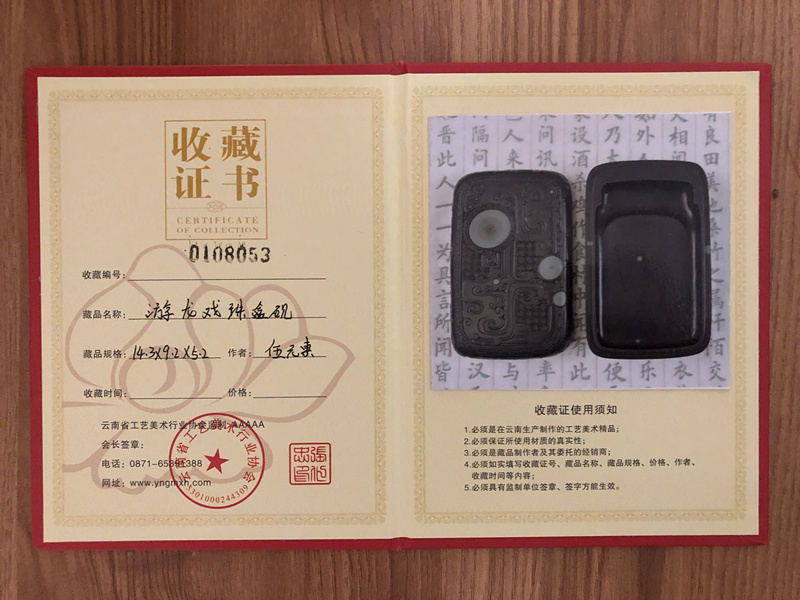 收藏
证书
CERTIFICATE
OF COLLECTION
0108053
收藏编号：
藏品名称：游龙戏珠盒砚
藏品规格：14.3X9.2X5.2 作者：伍元东
收藏时间： 价格：
云南省工艺美术行业协会监制 AAAAA
会长签章：
电话：0871-65391388
网址：www.yngmxh.com
云南省工艺美术行业协会
5301000244309
收藏证使用须知
1.必须是在云南生产制作的工艺美术精品；
2.必须保证所使用材质的真实性；
3.必须是藏品制作者及其委托的经销商；
4.必须如实填写收藏证号、藏品名称、藏品规格、价格、作者、
收藏时间等内容；
5.必须具有监制单位签章、签字方能生效。